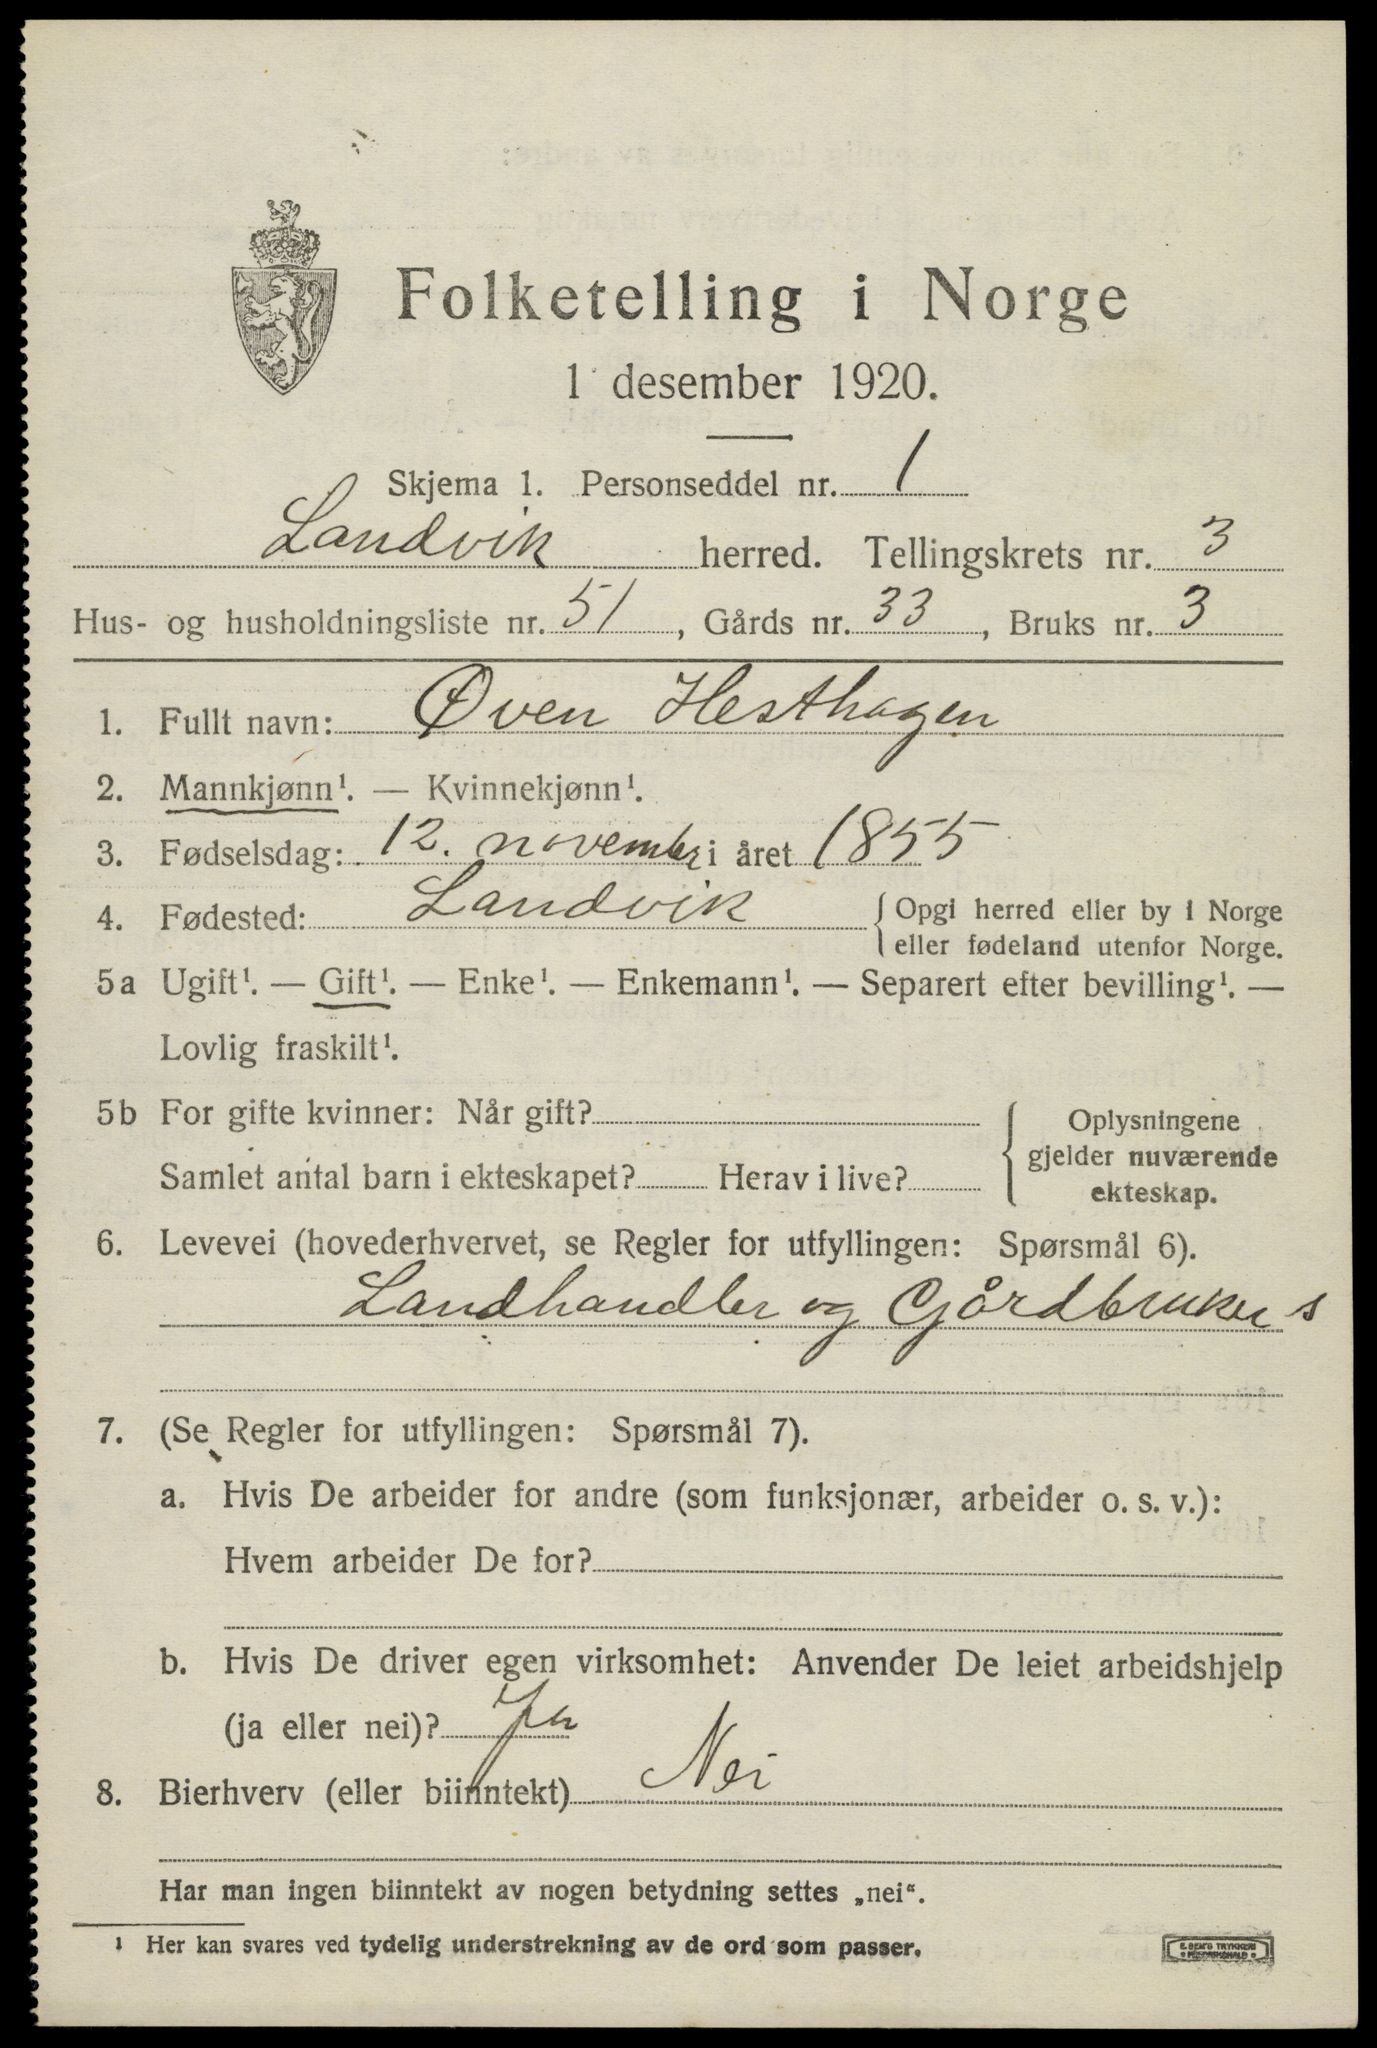 Folketelling i Norge
1 desember 1920.
Skjema 1. Personseddel nr. 1
Landvik herred. Tellingskrets nr. 3
Hus- og husholdningsliste nr. 51, Gårds nr. 33, Bruks nr. 3
1. Fullt navn: Øven Hesthagen
2. Mannkjønn¹. — Kvinnekjønn¹.
3. Fødselsdag: 12. november i året 1855
4. Fødested: Landvik { Opgi herred eller by i Norge
eller fødeland utenfor Norge.
5a Ugift¹. — Gift¹. — Enke¹. — Enkemann¹. — Separert efter bevilling¹. —
Lovlig fraskilt¹.
5b For gifte kvinner: Når gift?
Samlet antal barn i ekteskapet? Herav i live?
{ Oplysningene
gjelder nuværende
ekteskap.
6. Levevei (hovederhvervet, se Regler for utfyllingen: Spørsmål 6).
Landhandler og Gårdbruker s
7. (Se Regler for utfyllingen: Spørsmål 7).
a. Hvis De arbeider for andre (som funksjonær, arbeider o. s. v.):
Hvem arbeider De for?
b. Hvis De driver egen virksomhet: Anvender De leiet arbeidshjelp
(ja eller nei)? Ja
8. Bierhverv (eller biinntekt) Nei
Har man ingen biinntekt av nogen betydning settes „nei“.
¹ Her kan svares ved tydelig understrekning av de ord som passer.
E. SEM'S TRYKKERI
FREDRIKSHALD